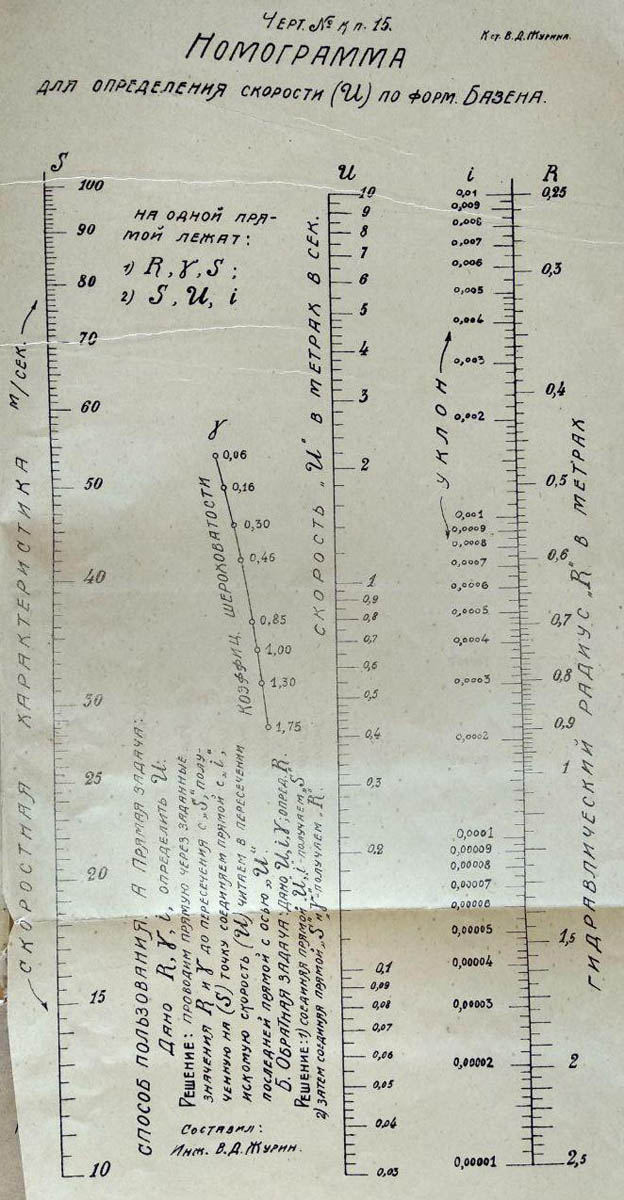 Черт. № к п. 15.
К ст. В. Д. Журина.
Номограмма
для определения скорости (U) по форм. Базена.
S
100
90
80
70
60
50
40
30
25
20
15
10
Скоростная характеристика м/сек.
На одной пря-
мой лежат:
1) R, γ, S;
2) S, U, i
γ
0,06
0,16
0,30
0,46
0,85
1,00
1,30
1,75
Коэффиц. шероховатости
U
10
9
8
7
6
5
4
3
2
1
0,9
0,8
0,7
0,6
0,5
0,4
0,3
0,2
0,1
0,09
0,08
0,07
0,06
0,05
0,04
0,03
Скорость „U" в метрах в сек.
i
0,01
0,009
0,008
0,007
0,006
0,005
0,004
0,003
0,002
0,001
0,0009
0,0008
0,0007
0,0006
0,0005
0,0004
0,0003
0,0002
0,0001
0,00009
0,00008
0,00007
0,00006
0,00005
0,00004
0,00003
0,00002
0,00001
Уклон
R
0,25
0,3
0,4
0,5
0,6
0,7
0,8
0,9
1
1,5
2
2,5
Гидравлический радиус „R" в метрах
Способ пользования. А Прямая задача:
Дано R, γ, i, определить U.
Решение: проводим прямую через заданные
значения R и γ до пересечения с „S", полу-
ченную на (S) точку соединяем прямой с „i",
искомую скорость (U) читаем в пересечении
последней прямой с осью „U"
Б. Обратная задача: Дано U, i, γ; опред. R.
Решение: 1) соединяя прямой U, i - получаем „S"
2) затем соединяя прямой „S" и „γ"- получаем „R".
Составил:
Инж. В. Д. Журин.